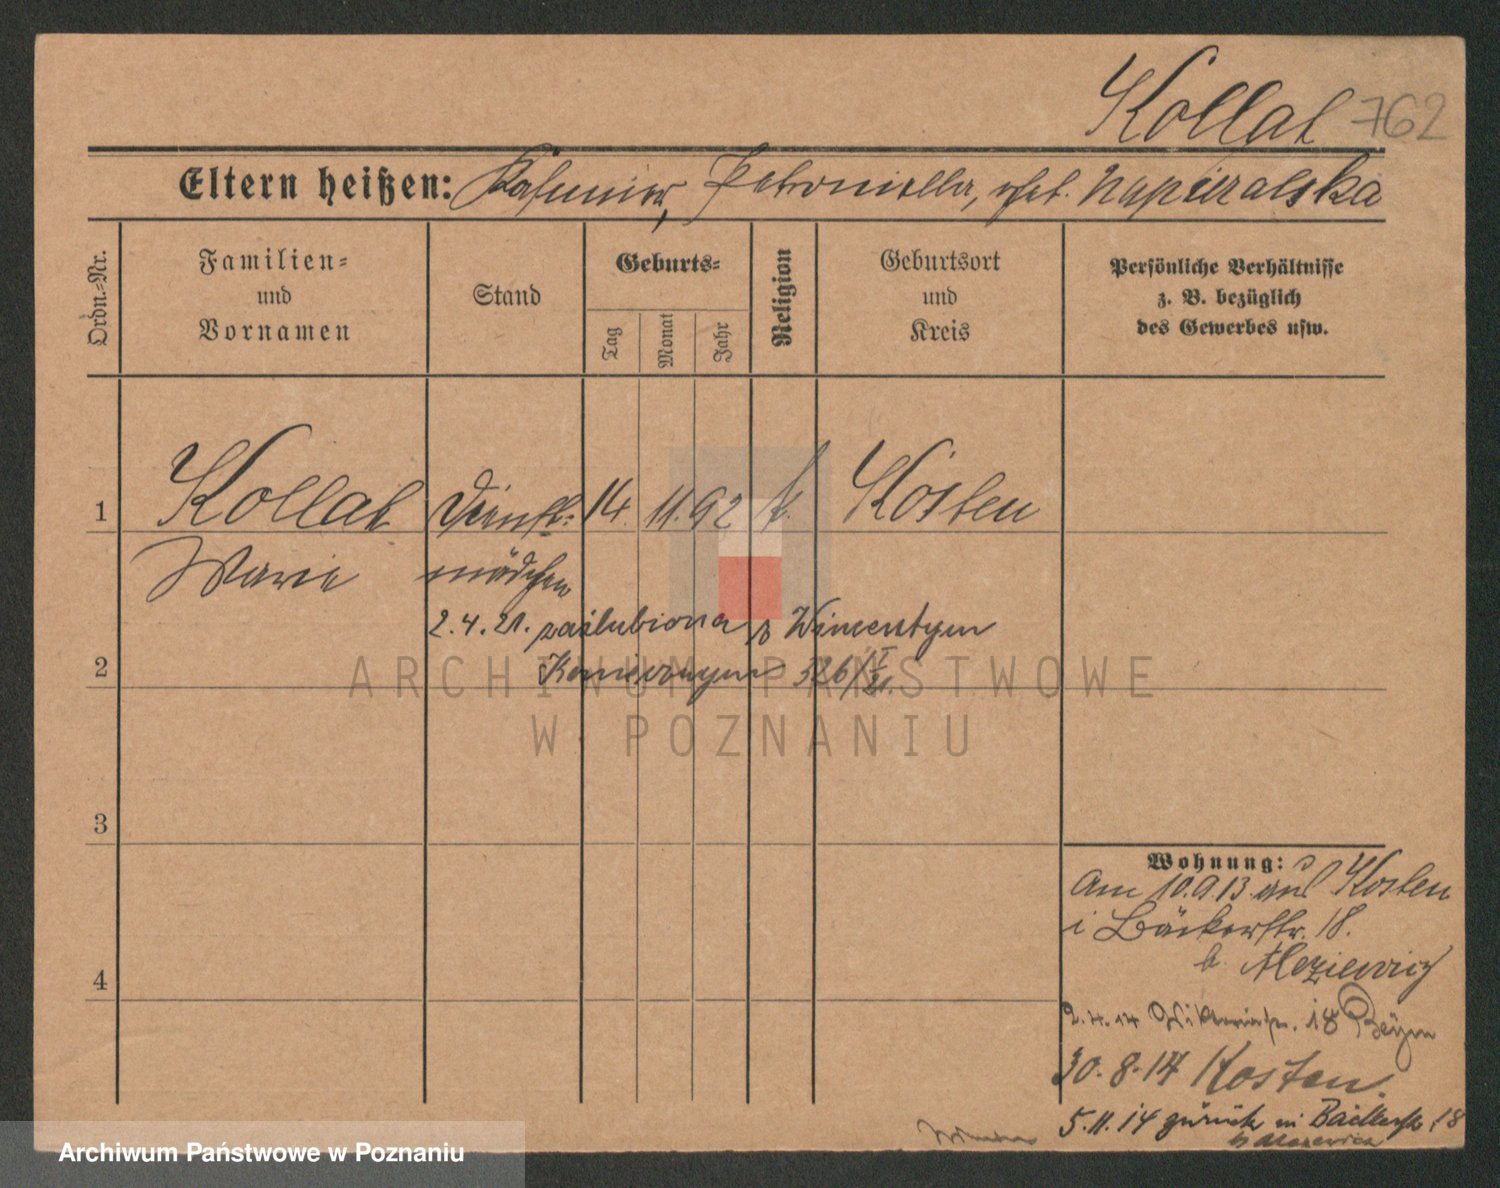 Kollat 762
Eltern heißen: Kasimir, Petronella, geb. Napieralska
Ordn.-Nr.
Familien-
und
Vornamen
Stand
Geburts-
Tag
Monat
Jahr
Religion
Geburtsort
und
Kreis
Persönliche Verhältnisse
z. B. bezüglich
des Gewerbes usw.
1 Kollat Dienst- 14. 11. 92 k. Kosten
Marie mädchen
2.4.21. zaślubiona z Wincentym
2
326/I 21.
3
4
Wohnung:
Am 10.9.13 aus Kosten
i Bäckerstr. 18.
b.
2.4.14 Viktoriastr. 18
30.8.14 Kosten.
5.11.14 zurück in Bäckerstr. 18
b
ARCHIWUM PAŃSTWOWE
W POZNANIU
Archiwum Państwowe w Poznaniu